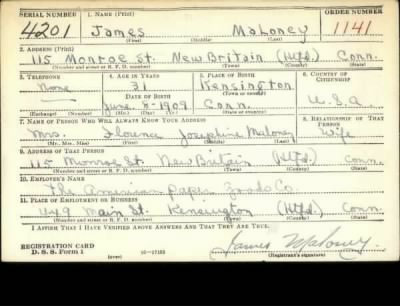 SERIAL NUMBER 1. NAME (Print) ORDER NUMBER
4201 James Maloney 1141
(First) (Middle) (Last)
2. ADDRESS (Print)
115 Monroe St. New Britain (Htfd.) Conn.
(Number and street or R. F. D. number) (Town) (County) (State)
3. TELEPHONE 4. AGE IN YEARS 5. PLACE OF BIRTH 6. COUNTRY OF CITIZENSHIP
None 31 Kensington
DATE OF BIRTH (Town or county)
— June 8-1909 Conn. U.S.A.
(Exchange) (Number) (Mo.) (Day) (Yr.) (State or country)
7. NAME OF PERSON WHO WILL ALWAYS KNOW YOUR ADDRESS 8. RELATIONSHIP OF THAT PERSON
Mrs. Florence Josephine Maloney Wife
(Mr., Mrs., Miss) (First) (Middle) (Last)
9. ADDRESS OF THAT PERSON
115 Monroe St. New Britain (Htfd.) Conn.
(Number and street or R. F. D. number) (Town) (County) (State)
10. EMPLOYER'S NAME
The American Paper Goods Co.
11. PLACE OF EMPLOYMENT OR BUSINESS
449 Main St. Kensington (Htfd.) Conn.
(Number and street or R. F. D. number) (Town) (County) (State)
I AFFIRM THAT I HAVE VERIFIED ABOVE ANSWERS AND THAT THEY ARE TRUE.
REGISTRATION CARD
D. S. S. Form 1 (over) 16-17105 James Maloney.
(Registrant's signature)